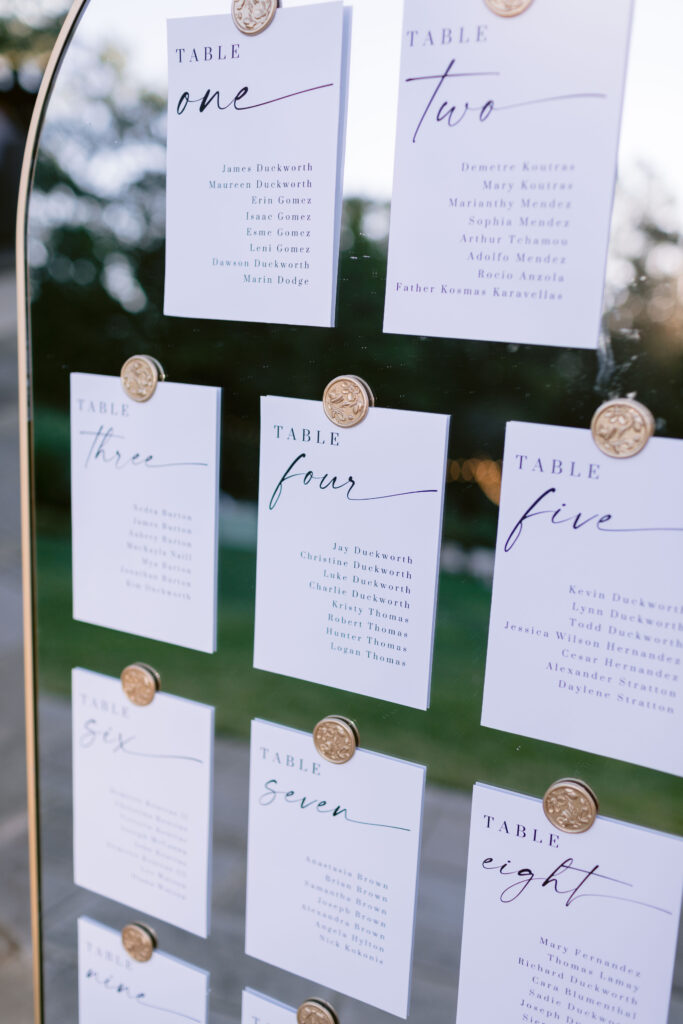 TABLE
one
James Duckworth
Maureen Duckworth
Erin Gomez
Isaac Gomez
Esme Gomez
Leni Gomez
Dawson Duckworth
Marin Dodge
TABLE
two
Demetre Koutras
Mary Koutras
Marianthy Mendez
Sophia Mendez
Arthur Tehamou
Adolfo Mendez
Rocío Anzola
Father Kosmas Karavellas
TABLE
three
Burton
James Burton
Aubrey Burton
Mackayla Naill
Mya Burton
Jonathan Burton
Kim Duckworth
TABLE
four
Jay Duckworth
Christine Duckworth
Luke Duckworth
Charlie Duckworth
Kristy Thomas
Robert Thomas
Hunter Thomas
Logan Thomas
TABLE
five
Kevin Duckworth
Lynn Duckworth
Todd Duckworth
Jessica Wilson Hernandez
Cesar Hernandez
Alexander Stratton
Daylene Stratton
TABLE
six
TABLE
seven
Anastasia Brown
Brian Brown
Samantha Brown
Joseph Brown
Alexandra Brown
Angela Hylton
Nick Kokonis
TABLE
eight
Mary Fernandez
Thomas Lamay
Richard Duckworth
Cara Blumenthal
Sadie Duckworth
TABLE
nine
TABLE